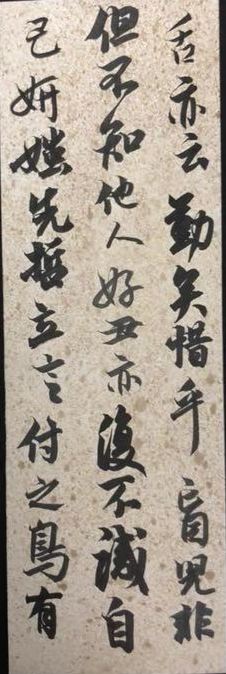 舌亦云勤矣惜乎盲兒非
但不知他人好丑亦復不識自
己妍媸先哲立言付之烏有